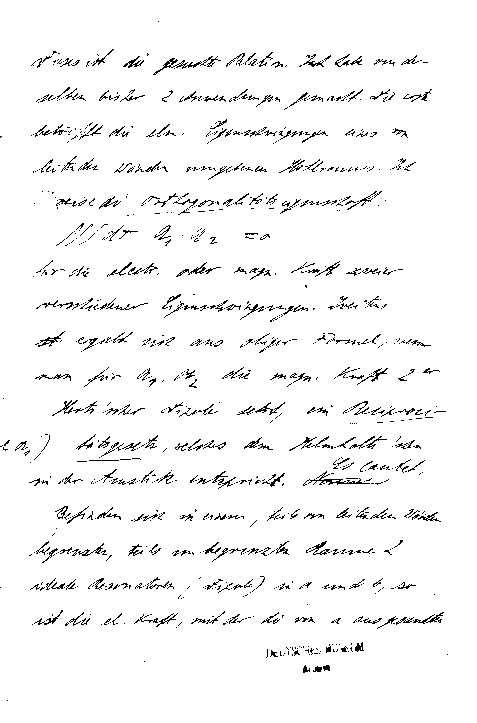 Dies ist die gesuchte Relation. Ich habe von der-
selben bisher 2 Anwendungen gemacht. Die erste
betrifft die elm. Eigenschwingungen eines von
leitenden Wänden umgebenen Hohlraumes. Ich
die Orthogonalitätseigenschaft:
∫∫∫ dτ 𝔄₁ 𝔄₂ = 0
für die electr. oder magn. Kraft zweier
verschiedener Eigenschwingungen. Zweitens
ergibt sich aus obiger Formel, wenn
man für 𝔄₁, 𝔄₂ die magn. Kraft 2er
Hertz'scher Dipole setzt, ein Reciproci-
tätsgesetz, welches dem Helmholtz'schen
in der Akustik entspricht. Es lautet:
Befinden sich in einem, teils von leitenden Wänden
begrenzten, teils unbegrenzten Raume 2
ideale Resonatoren (Dipole) in a und b, so
ist die el. Kraft, mit der die von a ausgesandte